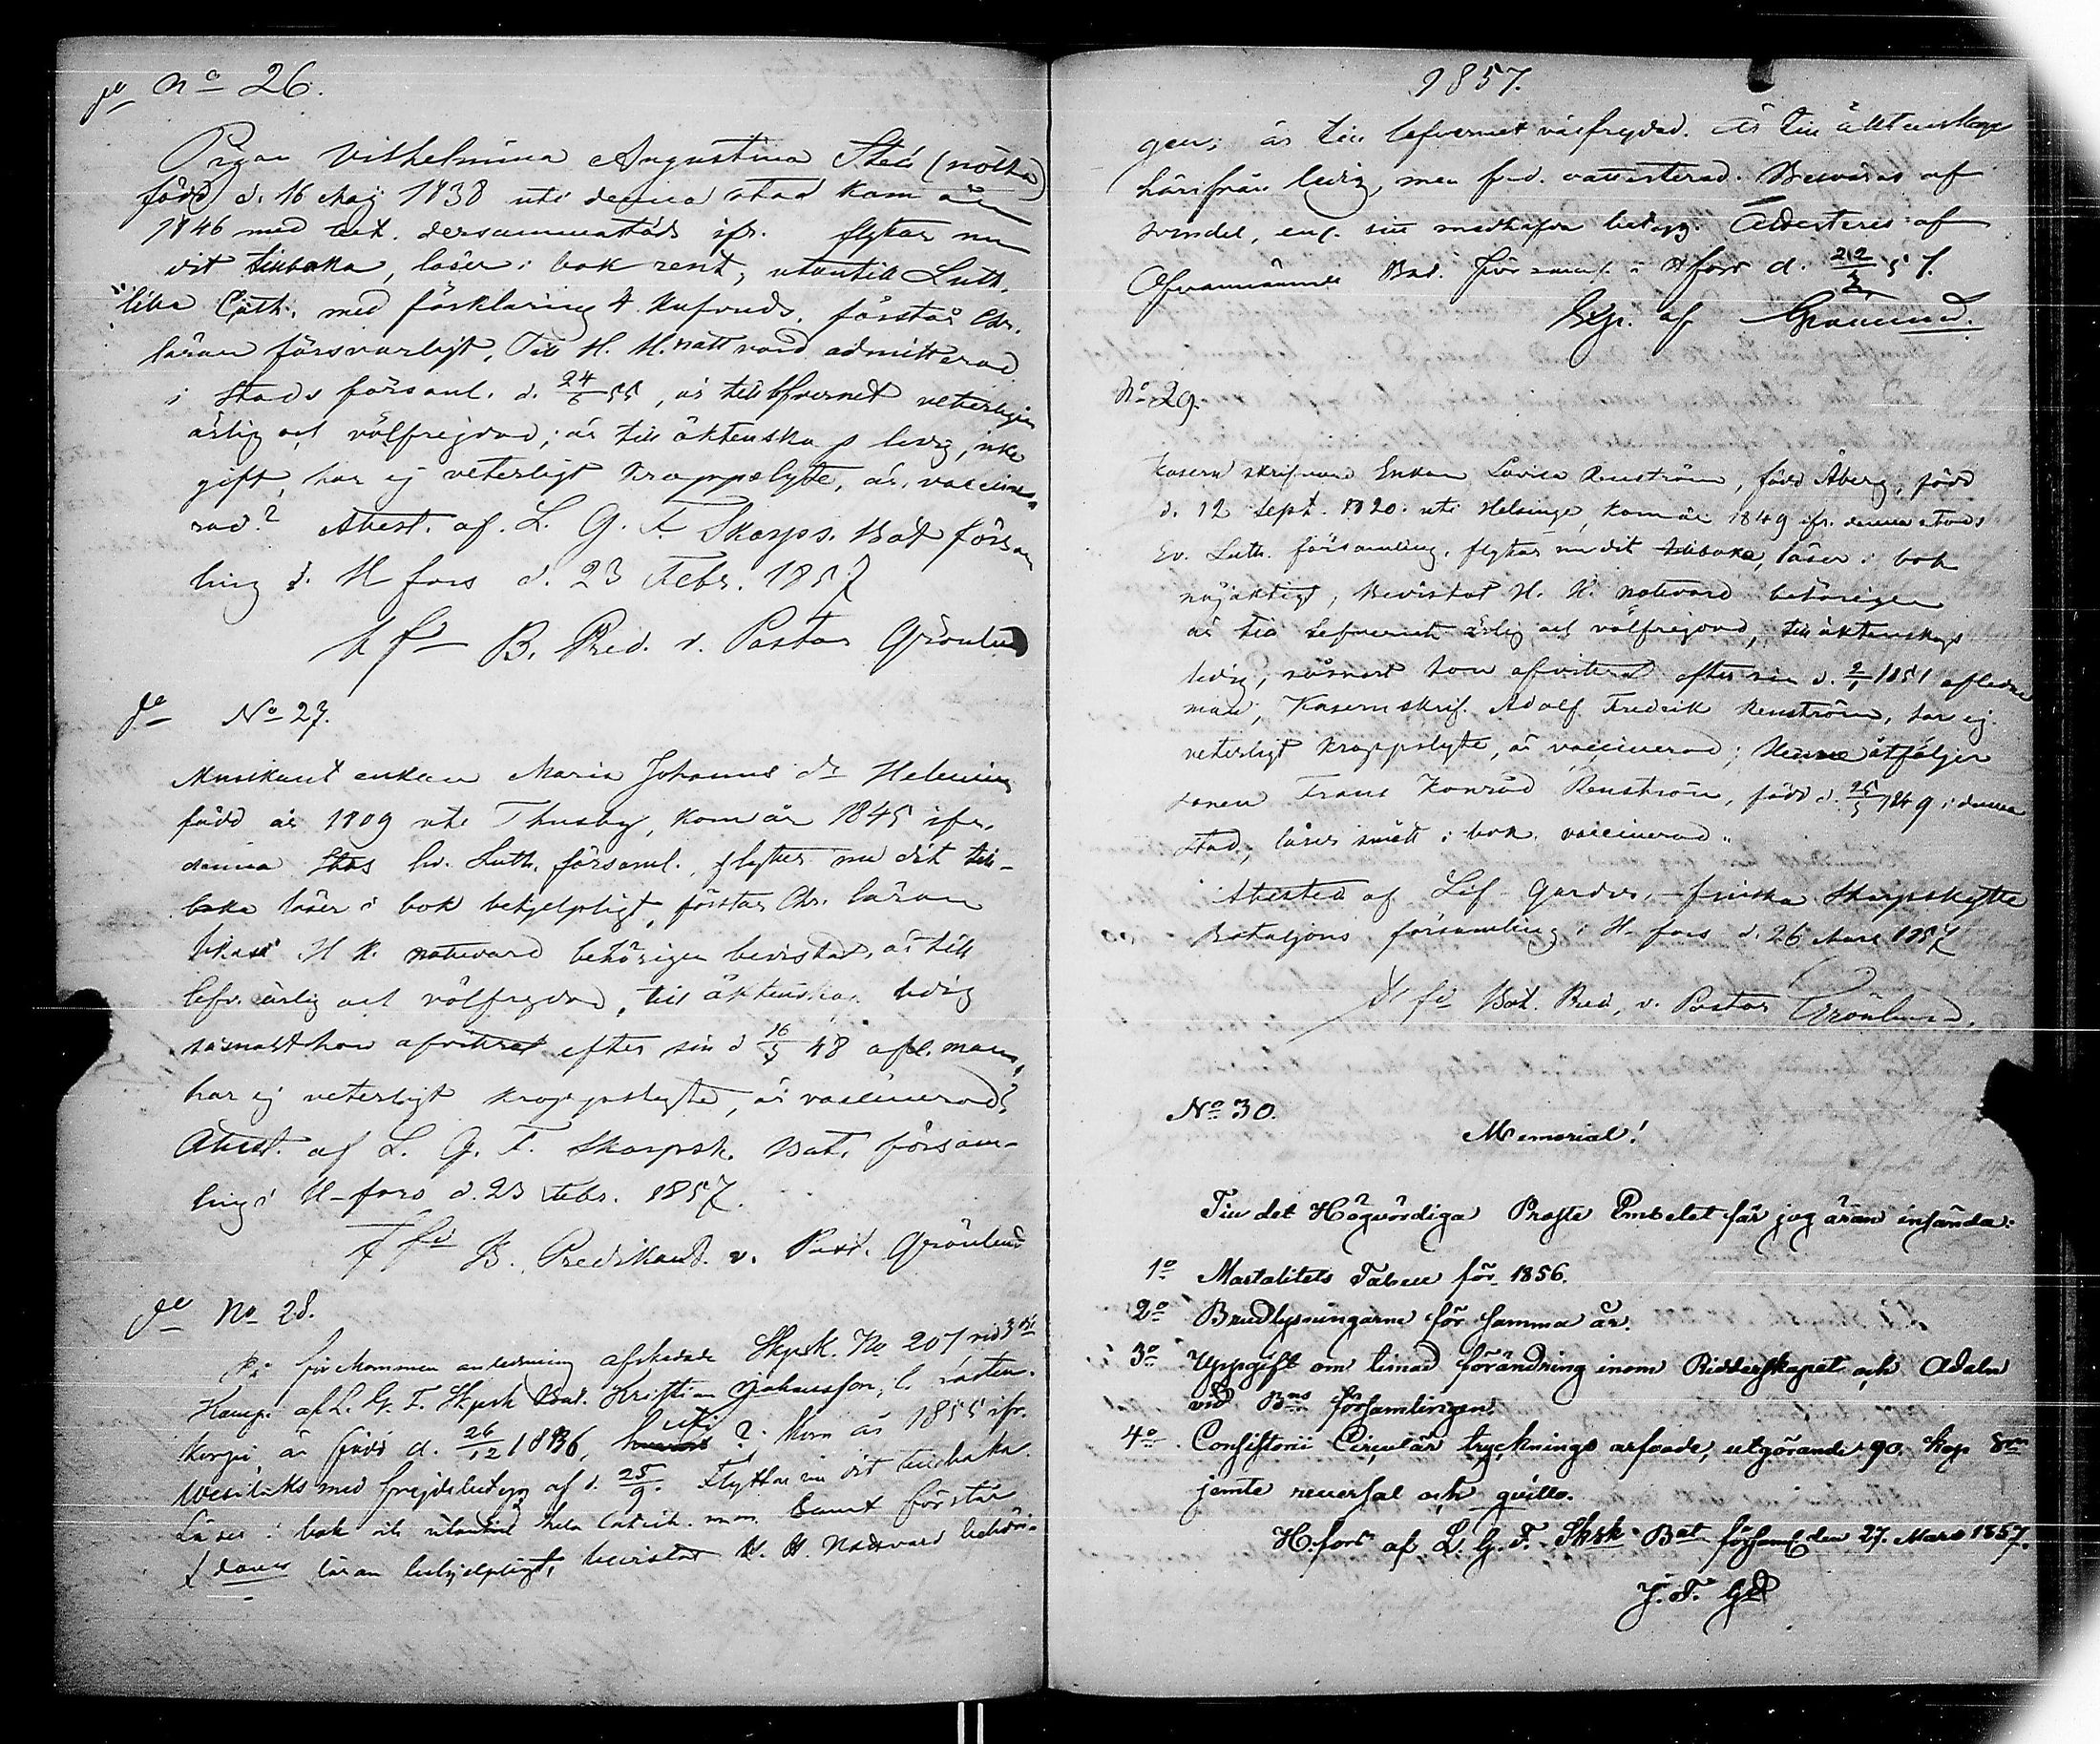 No 26.
Pigan Vilhelmina Augustina Sten (nötha)
född d. 16 Maj 1838 uti denna stad kom år
1846 med att. dersammastäds ifr. flyttar nu
dit tillbaka, läser i bok rent, utantill Luth.
lilla Cath. med förklaring 4 hufvuds. förstår Chr.
läran försvarligt, Till H. H. nattvard admitterad
i Stads församl. d. 24/6 55, är till lefvernet veterligen
ärlig och välfrejdad; är till äktenskap ledig, icke
gift, har ej veterligt kroppslyte, är vaccine-
rad? Attest. af L. G. F. Skarps. Bat. försam
ling i H fors d. 23 Febr. 1857
B. Pred. v. Pastor Grönlund
No 27.
Musikant enkan Maria Johansd:r Helenius
född år 1809 uti Thusby, kom år 1845 ifr.
denna Stads Ev. Luth. församl., flyttar nu dit till-
baka läser i bok behjelpligt, förstår Chr. läran
likaså H. H. nattvard behörigen bevistat, är till
lefv. ärlig och välfrejdad, till äktenskap ledig
såsnart hon afvittrat efter sin d 16/5 48 afl. man,
har ej veterligt kroppslyte, är vaccinerad?
Attest. af L. G. F. Skarpsk. Bat. försam-
ling i H-fors d. 23 Febr. 1857.
B. Predikant. v. Past. Grönlund
No 28.
På förekommen anledning afskedade Skpsk. No 207 vid 3dje
Komp. af L. G. F. Skpsk Bat. Kristian Johansson,
är född d. 26/12 1836, uti ? Kom år 1855 ifr.
med frejdebetyg af d. 25/9. Flyttar nu dit tillbaka.
Läser i bok och utantill hela Catech. m.m. samt förstår
läran behjelpligt, bevistat H. H. Nattvard behöri-
1857.
gen; är till lefvernet välfrejdad. Är till äktenskap
härifrån ledig, men f.d. vattesterad. Bevaras af
svindel, enl. sitt medhafva betyg. Attesteres af
Ofvannämnde Bat. församl. i Hfors d. 22/3 57.
Exp. af Grönlund.
No 29.
Kasern skrifvare Enkan Lovisa Renström, född Åberg, född
d. 12 Sept. 1820 uti Helsinge, kom år 1849 ifr. denna stads
Ev. Luth. församling, flyttar nu dit tillbaka, läser i bok
nöjaktigt, bevistat H. H. nattvard behörigen
är till lefvernet ärlig och välfrejdad, till äktenskap
ledig, såsnart hon afvittrat efter sin d. 2/1 1851 aflidne
man, Kasernskrif. Adolf Fredrik Renström, har ej
veterligt kroppslyte, är vaccinerad; Henne åtföljer
sonen Frans Konrad Renström, född d. 25/5 1849 i denna
stad, läser smått i bok, vaccinerad.
Attesteras af Lif-Gardes, finska Skarpskytte
Bataljons församling i H-fors d. 26 Mars 1857
Bat. Pred. v. Pastor Grönlund.
No 30.
Memorial!
Till det Högvördiga Prosts Embetet får jag äran insända:
1o Mortalitets Tabell för 1856.
2o Brudlysningarne för samma år.
3o Uppgift om timad förändring inom Ridderskapet och Adeln
vid Bns församlingen.
4o Consistorii Circulär trycknings arfvode, utgörande 90. kop Smt
jemte reversal och qvitto.
H.fors af L. G. F. Skpsk Bat församl den 27. Mars 1857.
J. F. Gd